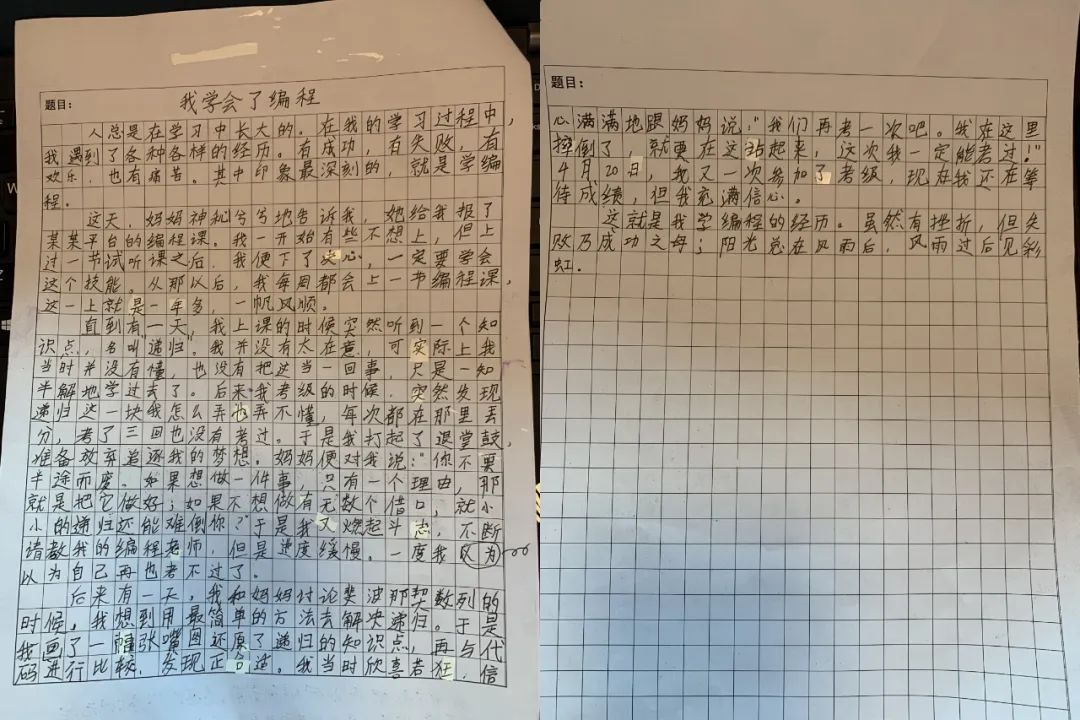 题目:
我学会了编程
人总是在学习中长大的。在我的学习过程中,
我遇到了各种各样的经历。有成功,有失败,有
欢乐,也有痛苦。其中印象最深刻的,就是学编
程。
这天,妈妈神秘兮兮地告诉我,她给我报了
某某平台的编程课。我一开始有些不想上,但上
过一节试听课之后,我便下了决心,一定要学会
这个技能。从那以后,我每周都会上一书编程课,
这一上就是一年多,一帆风顺。
直到有一天,我上课的时候突然听到一个知
识点,名叫“递归”。我并没有太在意,可实际上我
当时并没有懂,也没有把这当一回事,只是一知
半解地学过去了。后来我考级的时候,突然发现
递归这一块我怎么弄也弄不懂,每次都在那里丢
分,考了三回也没有考过。于是我打起了退堂鼓,
准备放弃追逐我的梦想。妈妈便对我说:“你不要
半途而废。如果想做一件事,只有一个理由,那
就是把它做好;如果不想做有无数个借口,就小
小的递归还能难倒你?”于是我又燃起斗志,不断
请教我的编程老师,但是进度缓慢。一度我以为
以为自己再也考不过了。
后来有一天,我和妈妈讨论斐波那契数列的
时候,我想到用最简单的方法去解决递归。于是
我画了一幅张嘴图还原了递归的知识点,再与代
码进行比较,发现正合适。我当时欣喜若狂,信
题目:
心满满地跟妈妈说:“我们再考一次吧。我在这里
摔倒了,就要在这站起来,这次我一定能考过!”
4月20日,我又一次参加了考级,现在我还在等
待成绩,但我充满信心。
这就是我学编程的经历。虽然有挫折,但失
败乃成功之母;阳光总在风雨后,风雨过后见彩
虹。